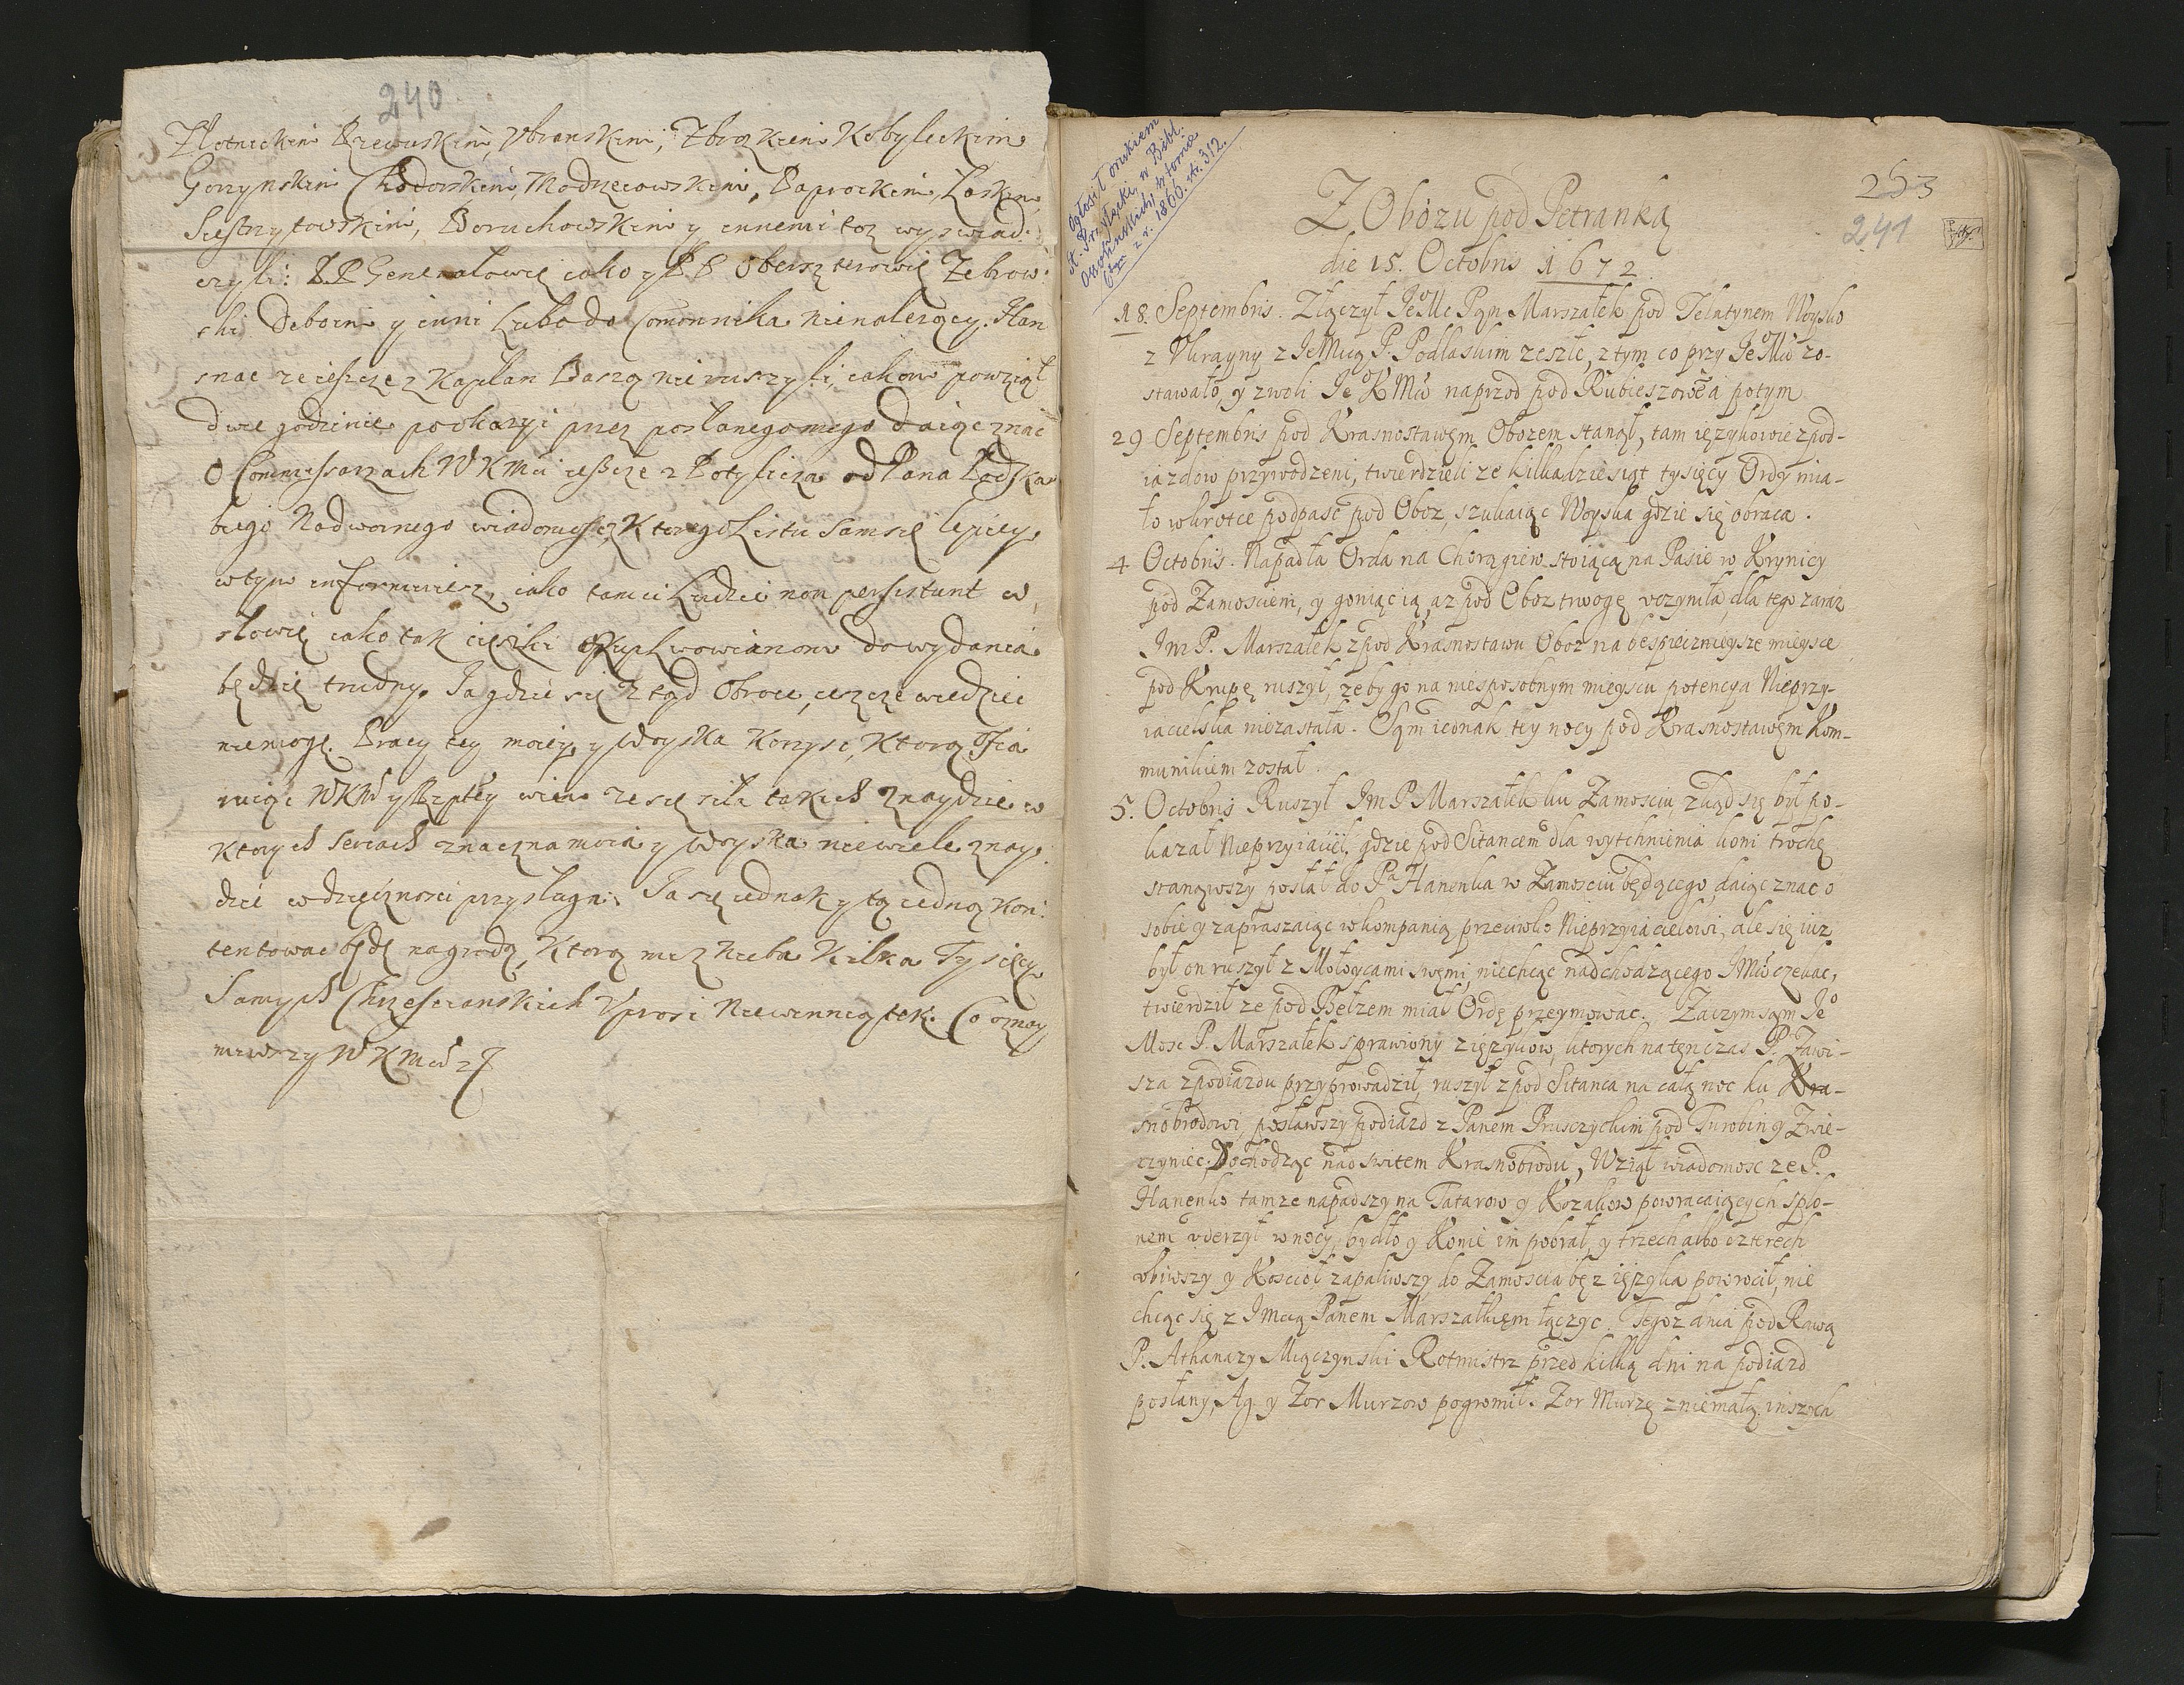 240
Złotnickim Rzewuskim, Vhranskim, Zbroskiem Kobyleckim
Gorzynskim Chodorskim, Modrzeiowskim, Paprockim, Laskim,
Siestrzytowskim, Boruchowskim y innemi toz wyswiad:
czyli: P.P. Generałowie iako y PP Oberszterowie Zebrow:
ski Deboim y inni Lubo do Commonnika nienalezący. Han
snac ze ieszcze z Kaplan Baszą nieruszyli, iakom powziął
dwie godzinie po okazyi przez posłanego mego daiąc znac
O Commissarzach WKMci ieszcze z Potylicza od Pana Podska
biego Nadwornego wiadomosc, z ktorego Listu sam się lepiey
w tym informuiesz, iako tamci Ludzie non persistunt w
słowie iako tak cięzki okup Lwowianom do wydania
będzie trudny. Ja gdzie się ztąd obroce, ieszcze wiedziec
niemogę. Pracy tey moiey y woyska korzysc, ktorą ofia
ruiąc WKM y Rzptey wiem ze się siła takich znaydzie w
ktorych sercach znaczna moia y woyska niewiele znay:
dzie wdzięcznosci przysługa. Ja się iednak y tą iedną kon:
tentowac będę nagrodą, ktorą mi z Nieba kilka Tysięcy
samych Chrzescianskich Vprosi Niewinniątek. Co oznay
miwszy WKMci z J
Ogłosił drukiem
St. Przyłęcki w Bibl.
Ossolińskich, w tomie
6tym z r. 1866. str. 312.
253
241
Z Obozu pod Petranką
die 15. Octobris 1672
18. Septembris. Złączył JeoMc Pan Marszałek pod Telatynem Woysko
z Vkrayny z JeMcią P. Podlaskim zeszłe, z tym co przy JeoMci zo-
stawało, y z woli Jeo KMci naprzod pod Rubieszow a potym
29 Septembris pod Krasnostawem Obozem stanął, tam ięzykowie z pod-
iazdow przywodzeni, twierdzieli ze kilkadziesiąt tysięcy Ordy mia-
ło wkrotce podpasc pod Oboz, szukaiąc Woyska gdzie się obraca.
4 Octobris. Napadła Orda na Chorągiew stoiącą na Pasie w Krynicy
pod Zamosciem, y goniąc ią, az pod Oboz trwogę vczyniła, dla tego zaraz
Jm P. Marszałek z pod Krasnostawu Oboz na bespiecznieysze mieysce
pod Krupę ruszył, zeby go na niesposobnym mieyscu potencya Nieprzy-
iacielska niezastała. Sam iednak tey nocy pod Krasnostawem Kom-
munikiem został.
5. Octobris Ruszył Jm P Marszałek ku Zamosciu, zkąd się był po-
kazał Nieprzyiaciel, gdzie pod Sitancem dla wytchnienia koni trochę
stanąwszy posłał do Pa Hanenka w Zamosciu będącego, daiąc znac o
sobie y zapraszaiąc w kompanią przeciwko Nieprzyiacielowi, ale się iuz
był on ruszył z Mołoycami swemi, niechcąc nadchodzącego JMci czekac,
twierdził ze pod Bełzem miał Ordę przeymowac. Zaczym sam Jeo
Mosc P. Marszałek sprawiony z ięzykow, ktorych natenczas P. Zawi-
sza z podiazdu przyprowadził, ruszył z pod Sitanca na całą noc ku Kra-
snobrodowi, posławszy podiazd z Panem Prusczyckim pod Turobin y Zwie-
rzyniec. Dochodząc nad switem Krasnobrodu, Wziął wiadomosc ze P.
Hanenko tamze napadszy na Tatarow y Kozakow powracaiących z plo-
nem vderzył w nocy, bydło y Konie im pobrał, y trzech albo czterech
vbiwszy y Koscioł zapaliwszy do Zamoscia bez ięzyka powrocił, nie
chcąc się z Jmcią Panem Marszałkiem łączyc. Tegoz dnia pod Rawą
P. Athanazy Miączynski Rotmistrz przed kilką dni na podiazd
posłany, Ag. y Zor Murzow pogromił. Zor Murzę z niemałą inszych